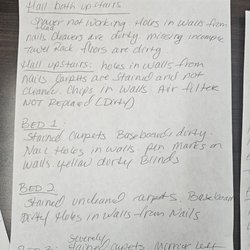 Hall bath upstairs
Shower not working Holes in walls from
nails, drawers are dirty. missing incomplete
towel rack floors are dirty
Hall upstairs: holes in walls from
nails carpets are stained and not
cleaned. Chips in walls Air filter
NOT Replaced (Dirty)
BED 1
Stained carpets Baseboards dirty.
Nail Holes in walls pen marks on
walls. yellow dirty Blinds
BED 2
Stained uncleaned carpets. Baseboard
Dirty Holes in walls from Nails
Severely
stained carpets mirror left